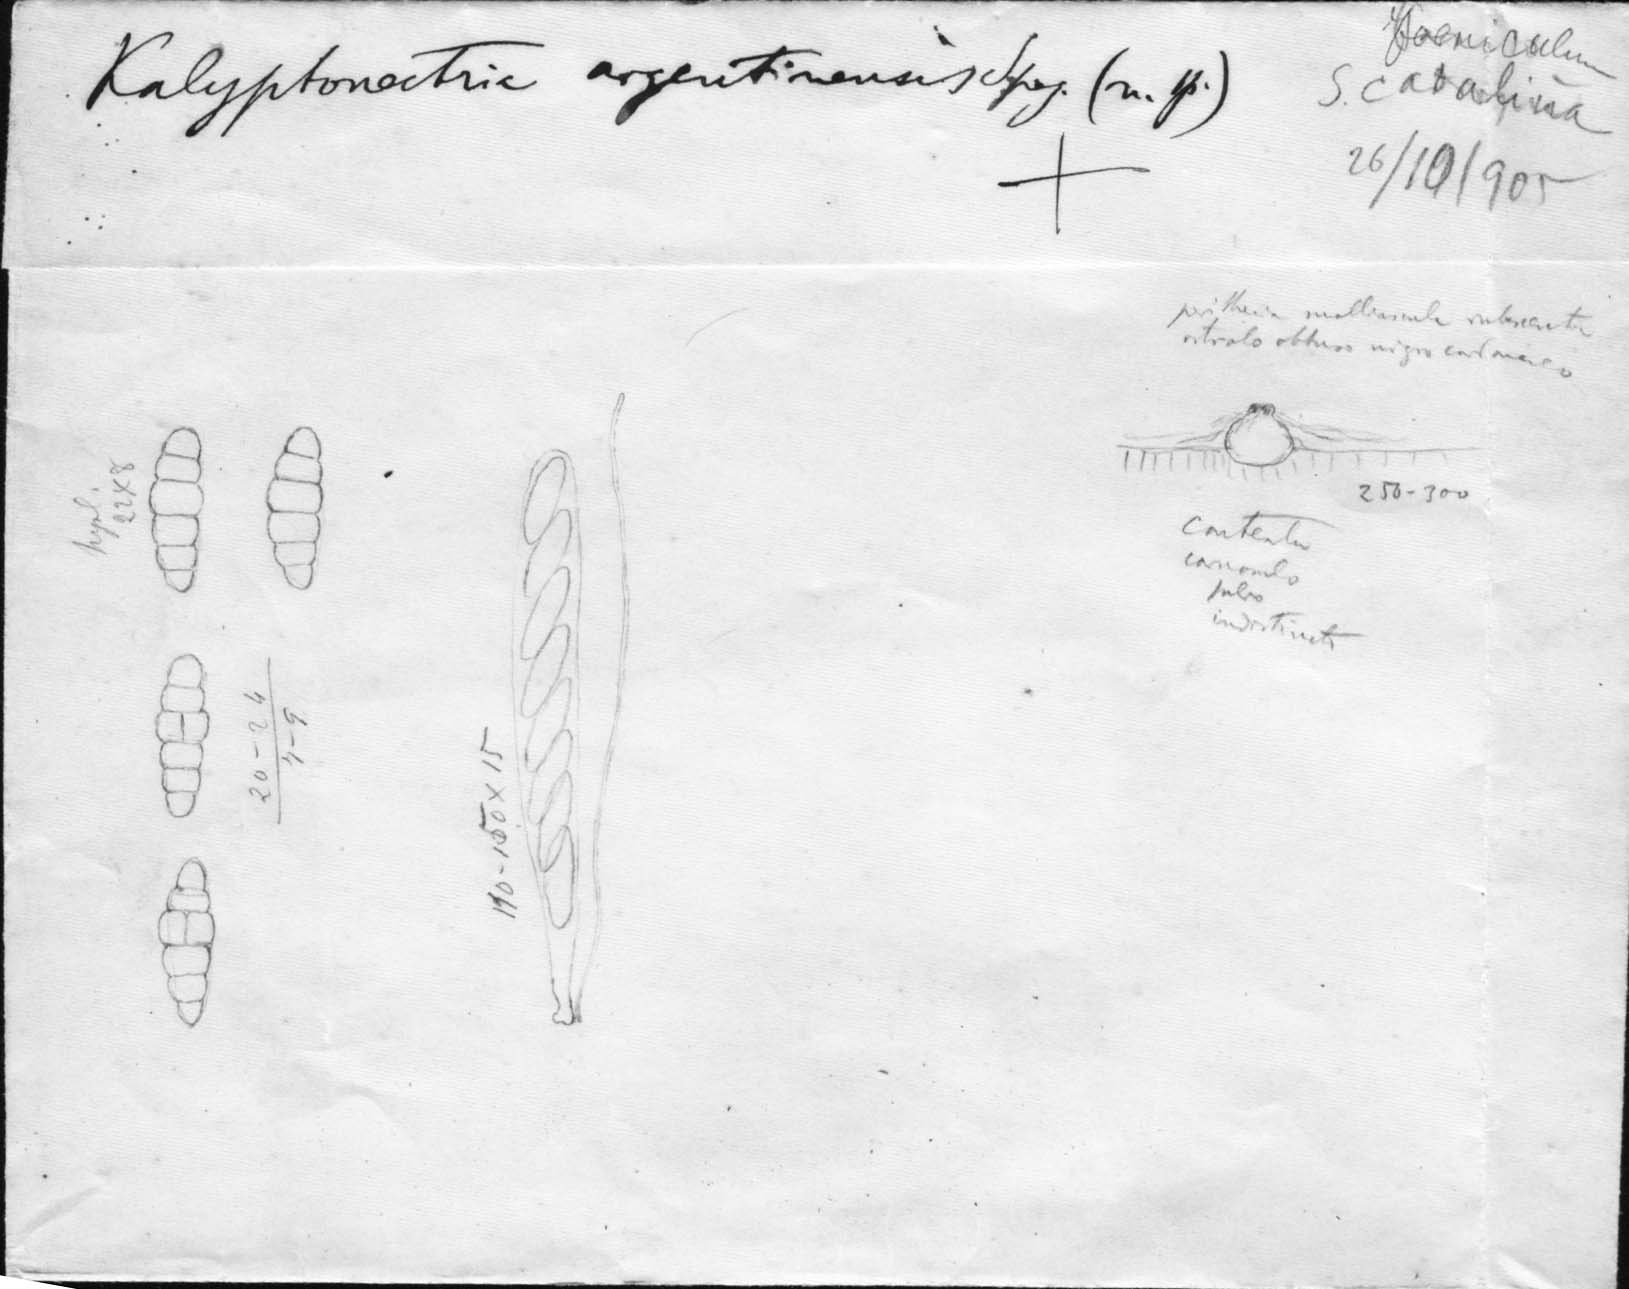 Kalyptonectria argentinensis Speg. (n. sp.)
Foeniculum
S. Catalina
26/10/905
perithecia molliuscula
ostiolo obtuso nigro carbonaceo
250-300
contextu
indistincte
hyal.
22X8
20-24
7-9
140-150X15